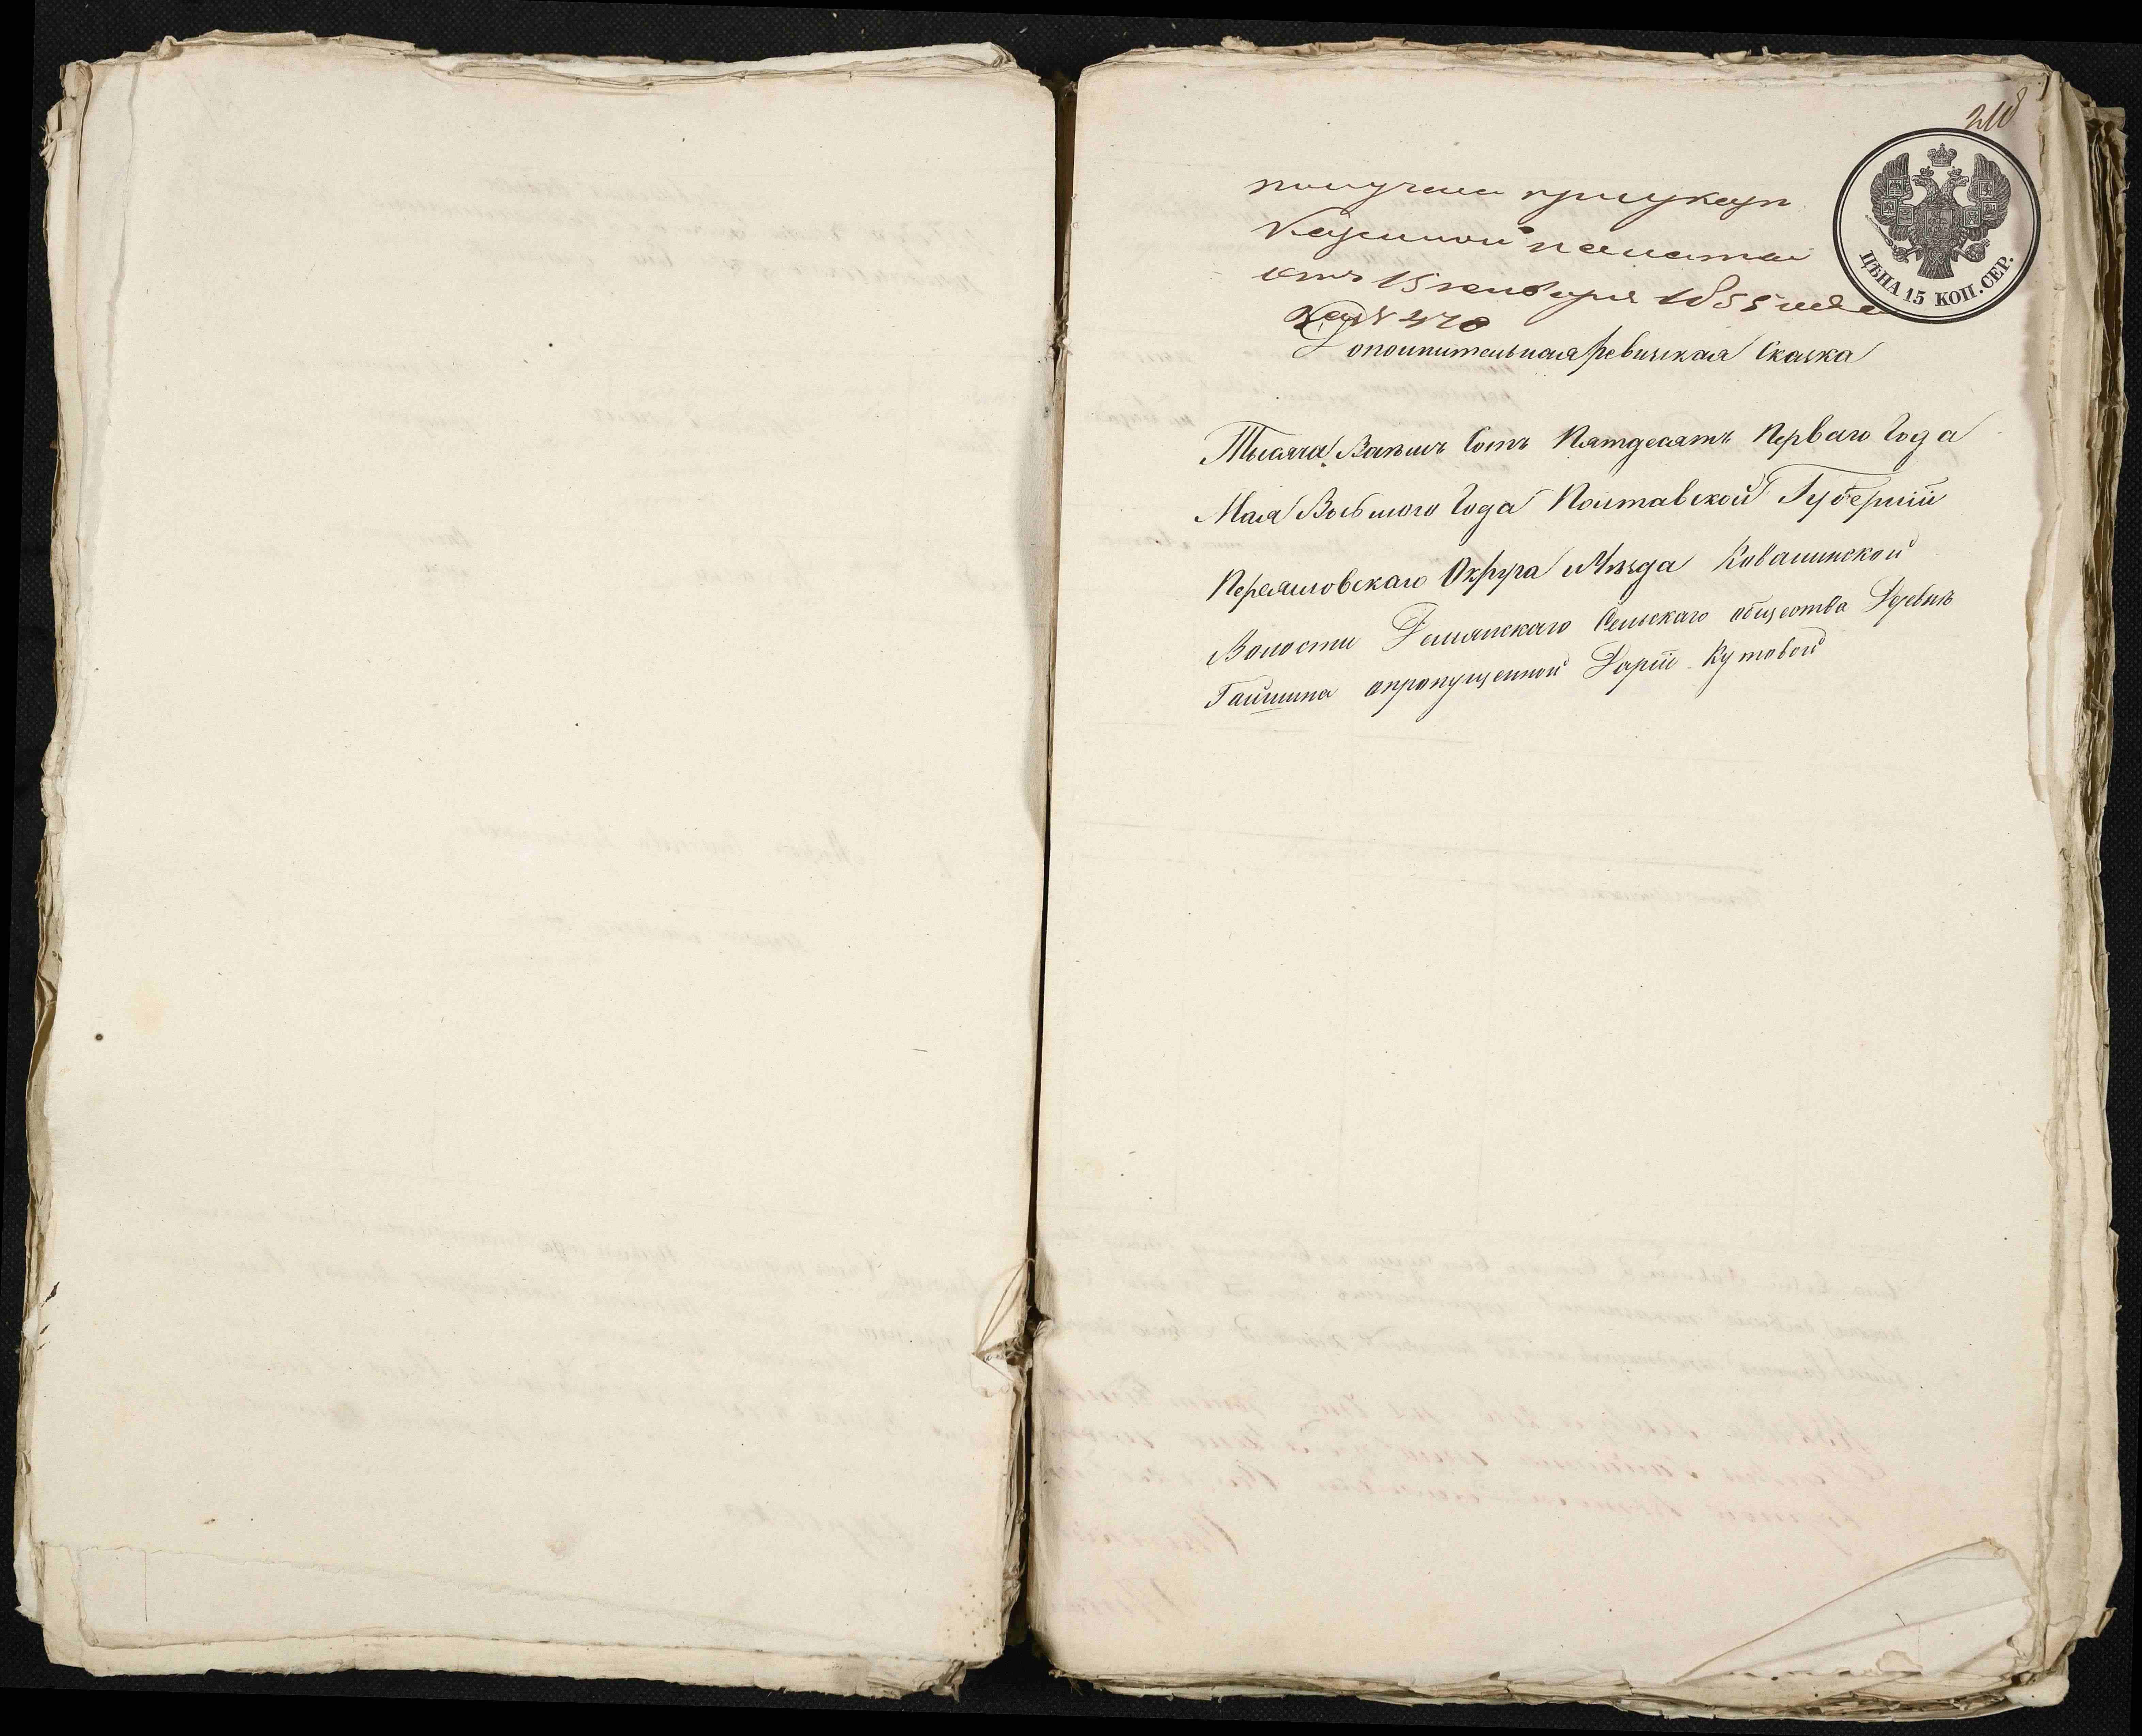 218
получена при указе
Казенной палаты
отъ 15 января 1855 года
за № 478
ЦѢНА 15 КОП. СЕР.
Дополнительная Ревизская Сказка
Тысяча Восемь Сотъ Пятдесятъ Перваго Года
Мая Восьмого Года Полтавской Губерніи
Переяловскаго Округа и Уѣзда Ковалинской
Волости Демянскаго Сельскаго общества Деревнѣ
Гайшина опропущенной Даріи Кутовой